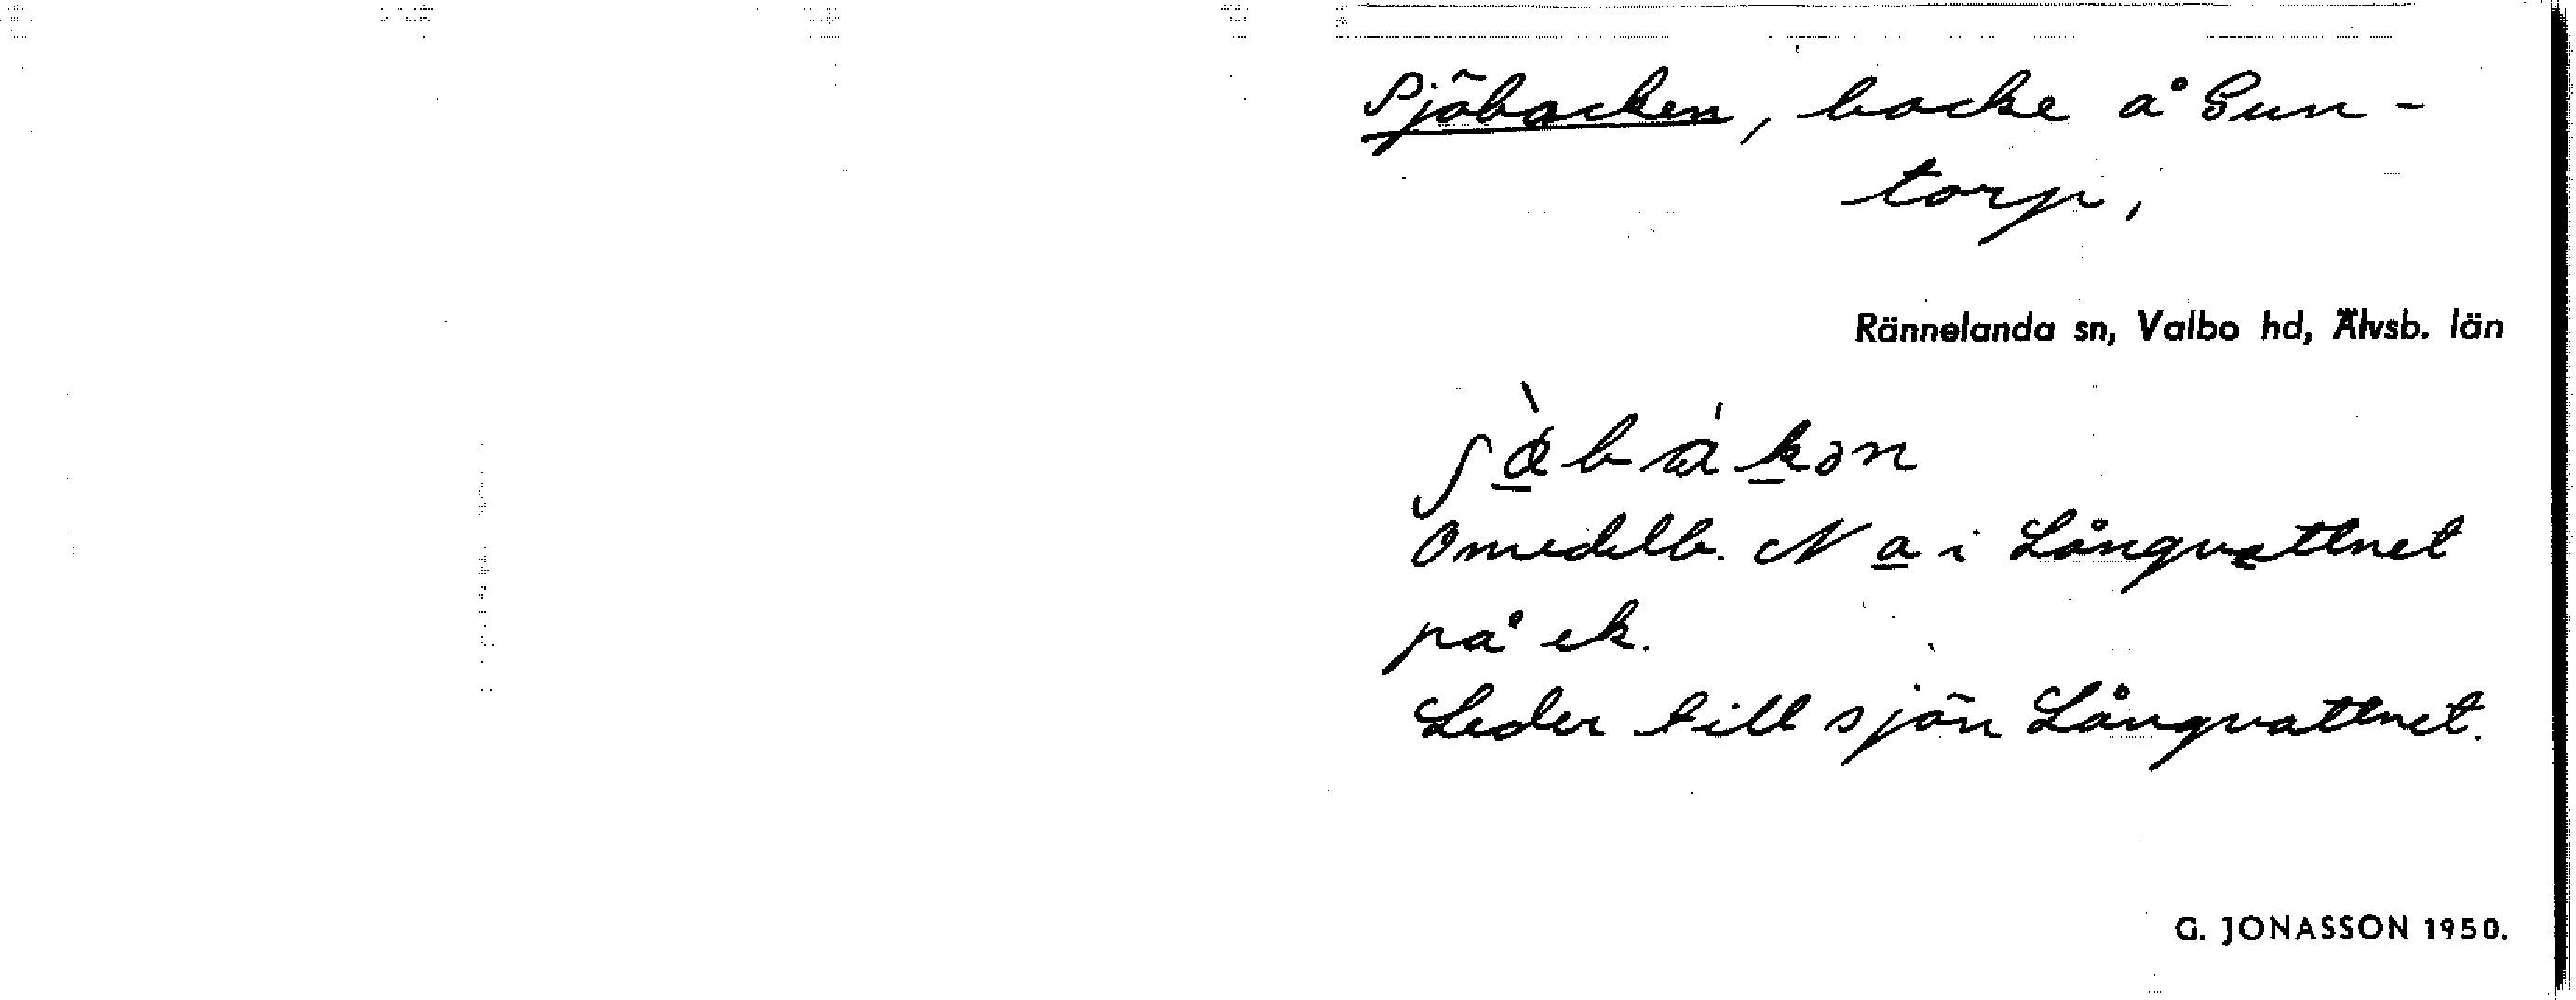 Sjöbacken, backe å Sun-
torp,
Rännelanda sn, Valbo hd, Älvsb. län
Omedelb. N a i Långvattnet
på ek.
Leder till sjön Långvattnet.
G. JONASSON 1950.